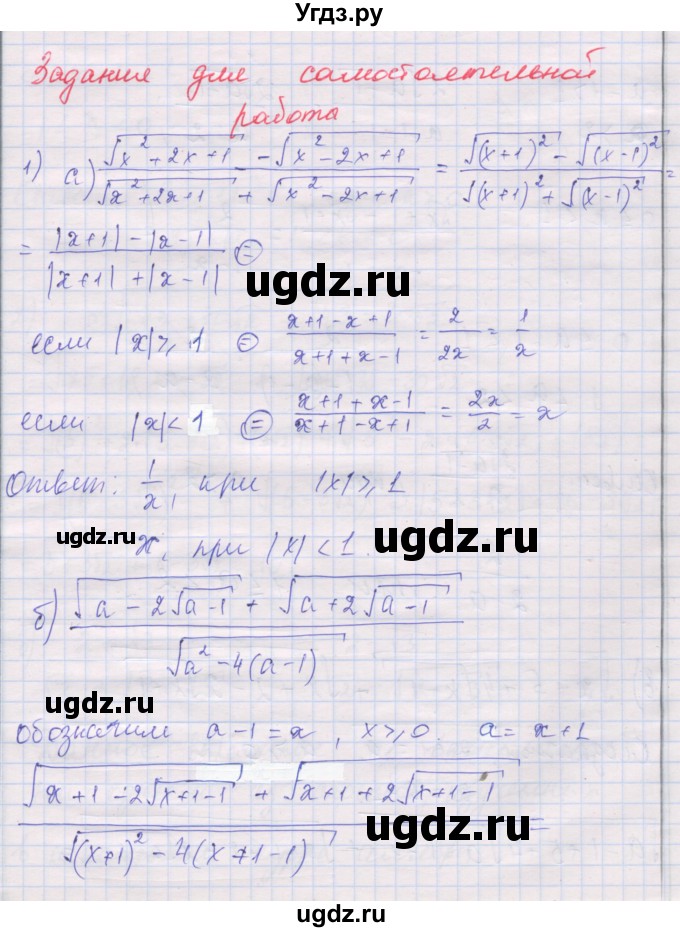 Угдз.ру
Задания для самостоятельной
работа
1) а) (√(x² + 2x + 1) - √(x² - 2x + 1)) / (√(x² + 2x + 1) + √(x² - 2x + 1)) = (√((x+1)²) - √((x-1)²)) / (√((x+1)²) + √((x-1)²)) =
= (|x+1| - |x-1|) / (|x+1| + |x-1|) ⊜
ugdz.ru
если |x| ⩾ 1 ⊜ (x+1-x+1) / (x+1+x-1) = 2/2x = 1/x
если |x| < 1 ⊜ (x+1+x-1) / (x+1-x+1) = 2x/2 = x
Ответ: 1/x, при |x| ⩾ 1
ugdz.ru ugdz.ru
x, при |x| < 1.
б) (√(a - 2√(a-1)) + √(a + 2√(a-1))) / √(a² - 4(a-1))
ugdz.ru
обозначим a-1 = x, x ⩾ 0. a = x+1
(√(x+1-2√(x+1-1)) + √(x+1+2√(x+1-1))) / √((x+1)² - 4(x+1-1)) =
ugdz.ru
ugdz.ru